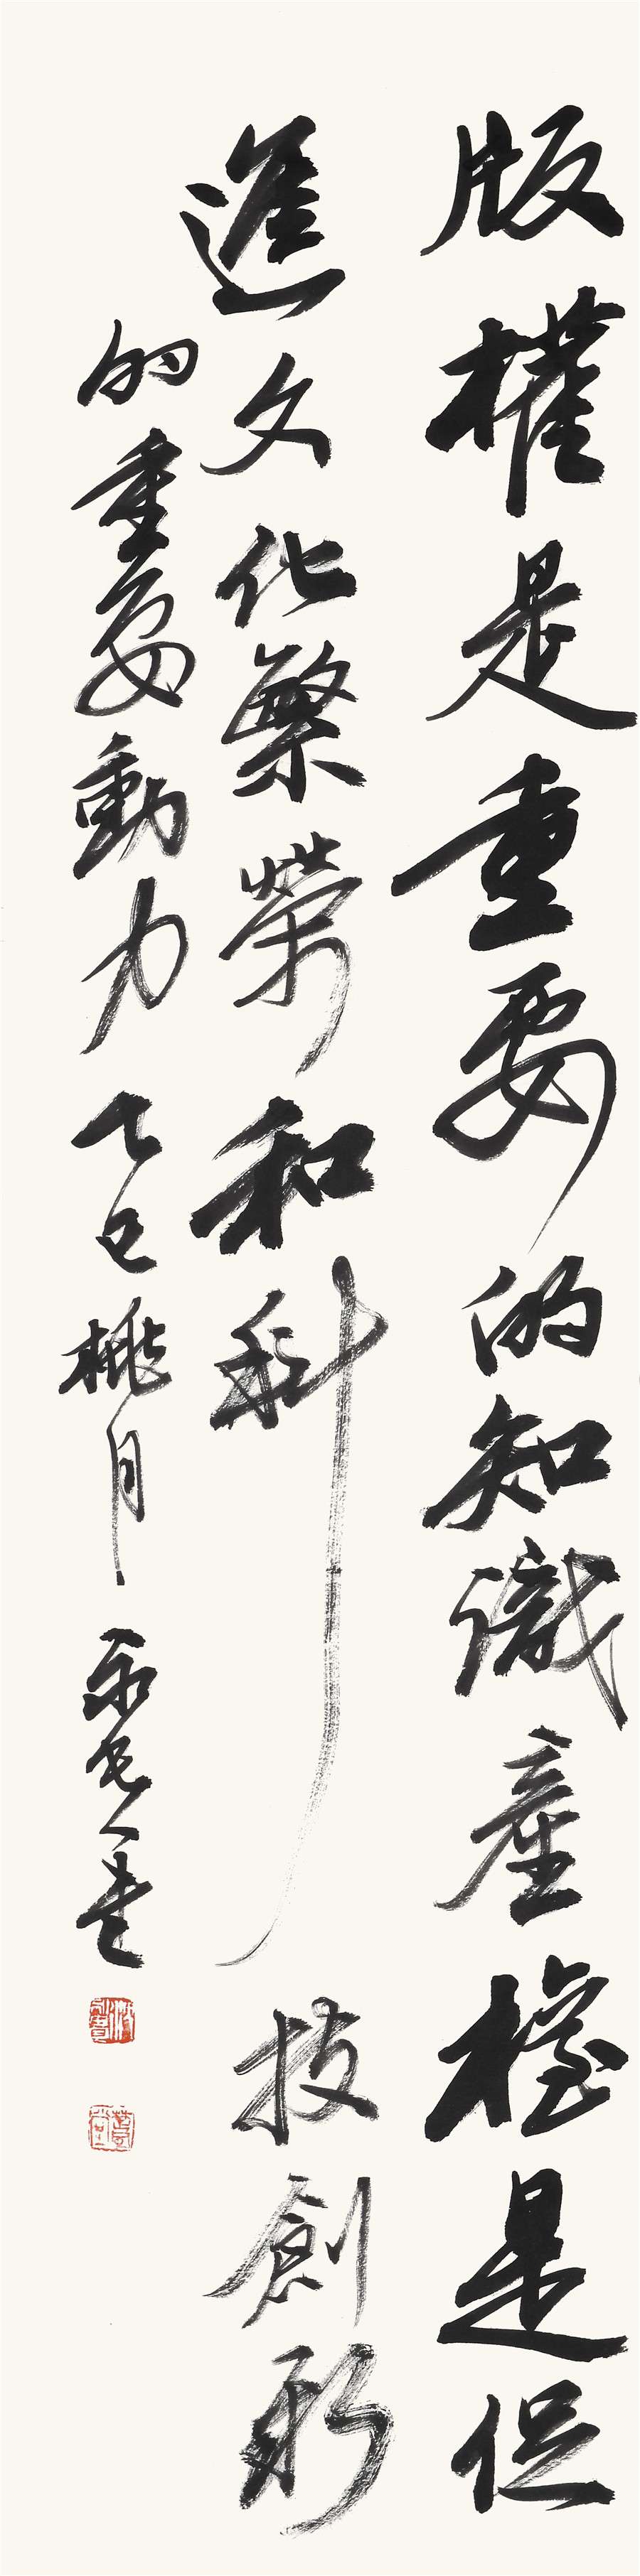 版權是重要的知識產權是促
進文化繁榮和科技創新
的重要動力 乙巳桃月